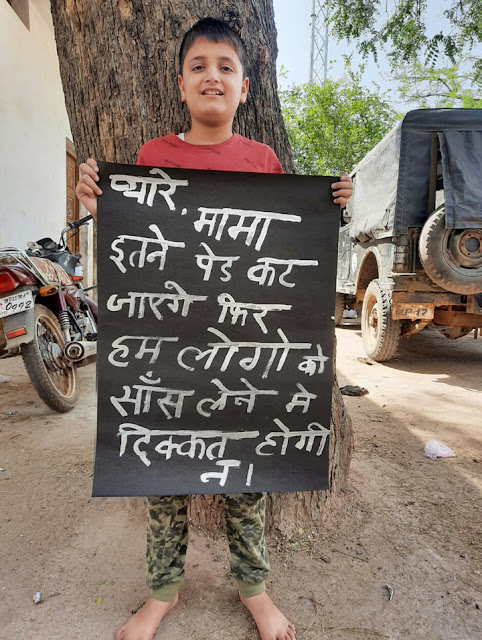 प्यारे. मामा
इतने पेड कट
जाएगे फिर
हम लोगो को
साँस लेने मे
दिक्कत होगी
न।
0092